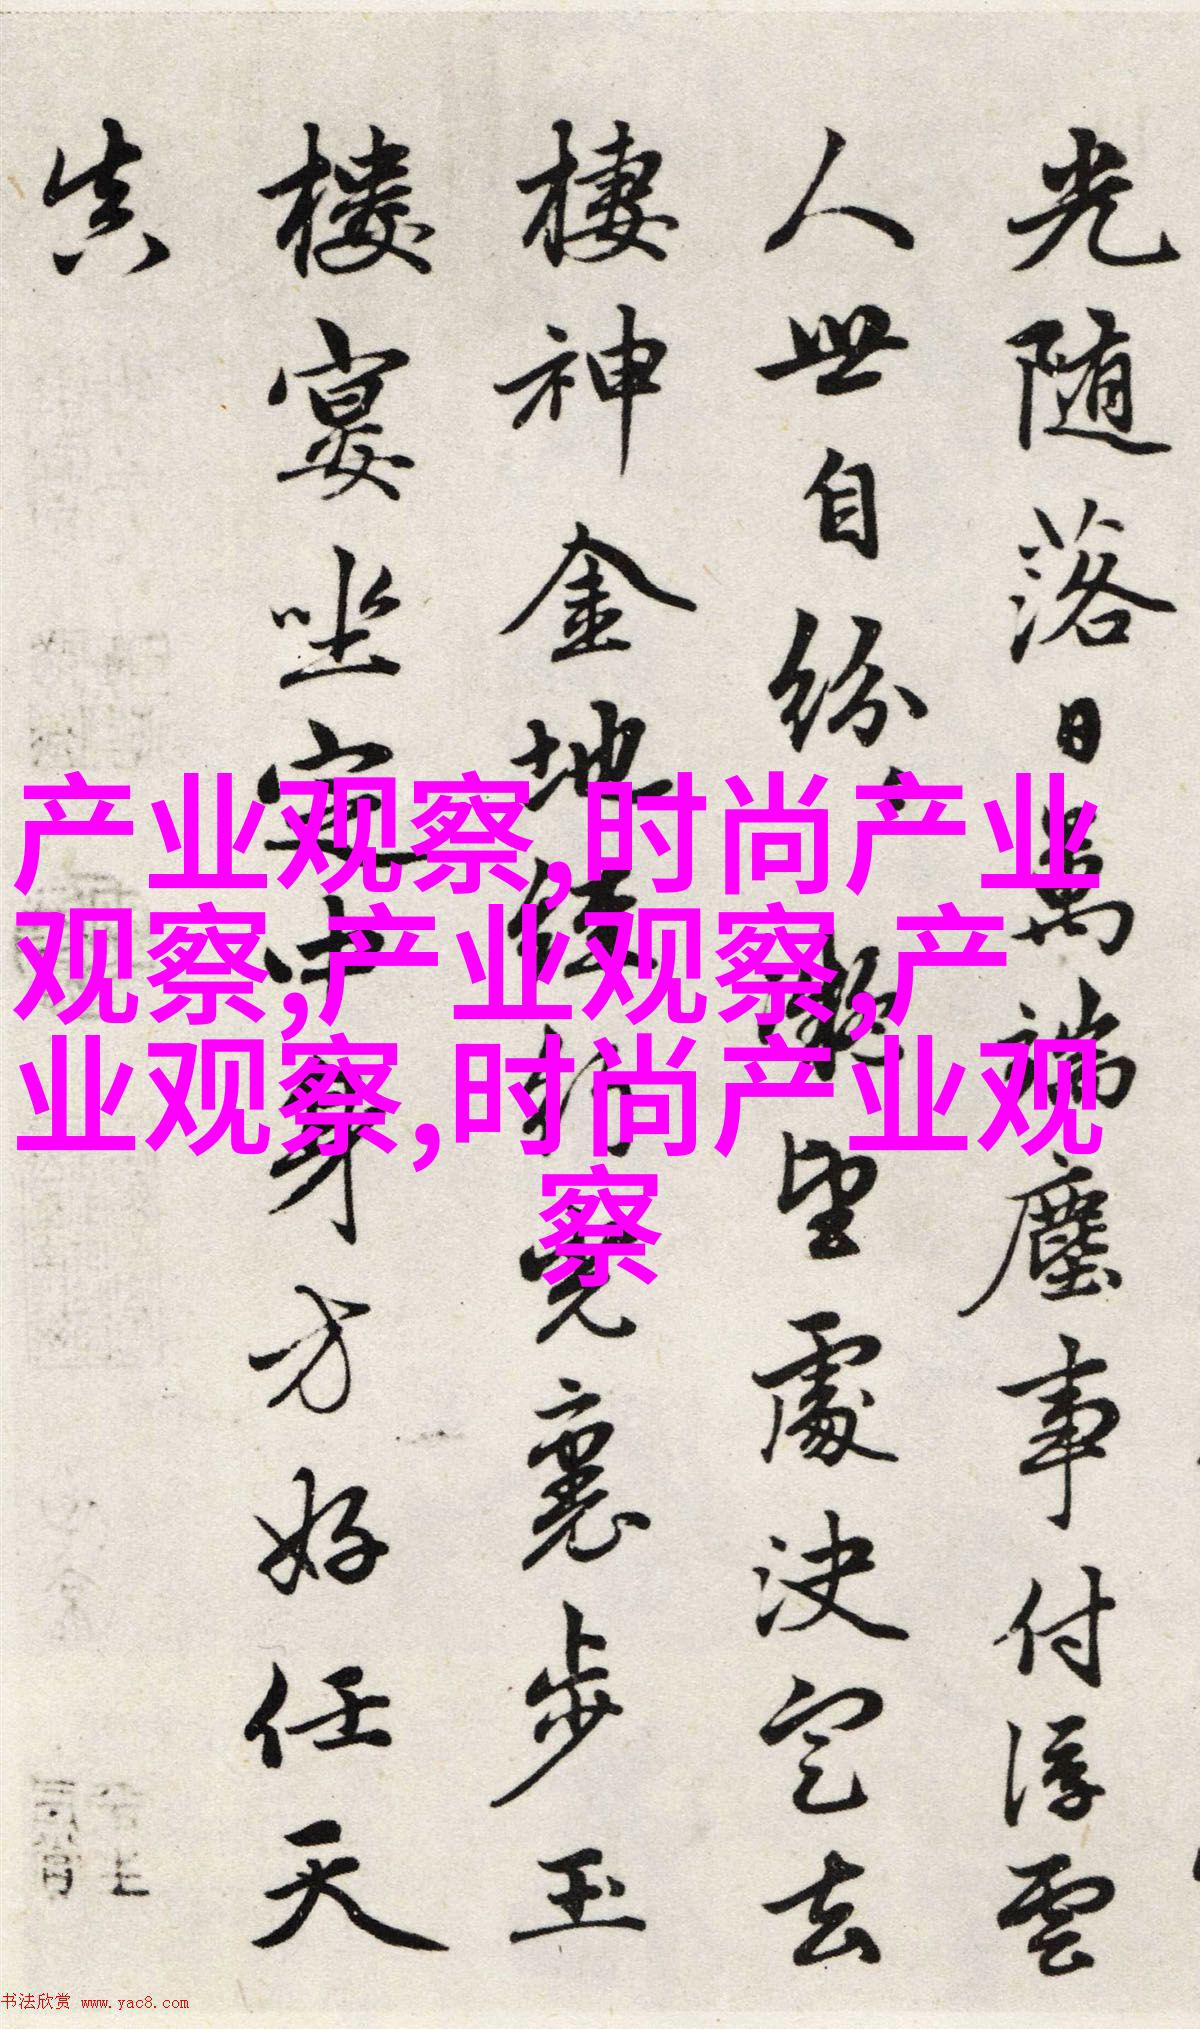 光随落日萬端塵事付浮雲
人世自紛望處決定去
棲神金地經行覺裏步玉
樓宴坐定中身方好任天
真
产业观察,时尚产业
观察,产业观察,产
业观察,时尚产业观
察
书法欣赏 www.yac8.com